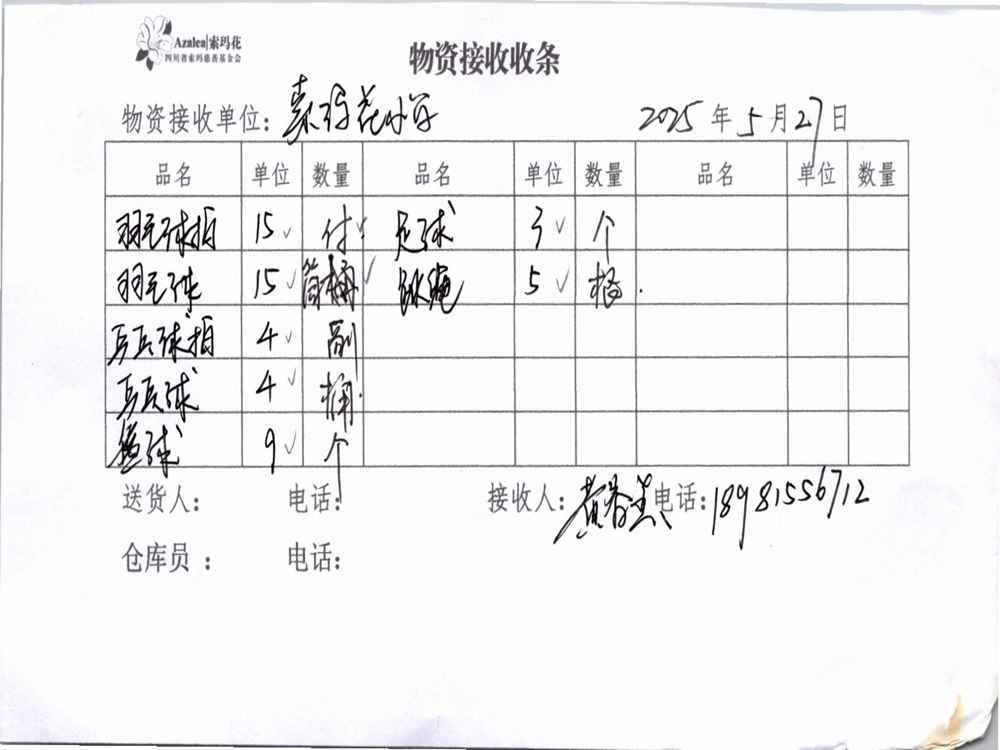 Azalea|索玛花
四川省索玛慈善基金会
物资接收收条
物资接收单位：索玛花小学 2025年5月27日
品名 单位 数量 品名 单位 数量 品名 单位 数量
羽毛球拍 15 付 足球 3 个
羽毛球 15 桶 跳绳 5 根
乒乓球拍 4 副
乒乓球 4 桶
篮球 9 个
送货人： 电话： 接收人：黄春美 电话：18981556712
仓库员： 电话：